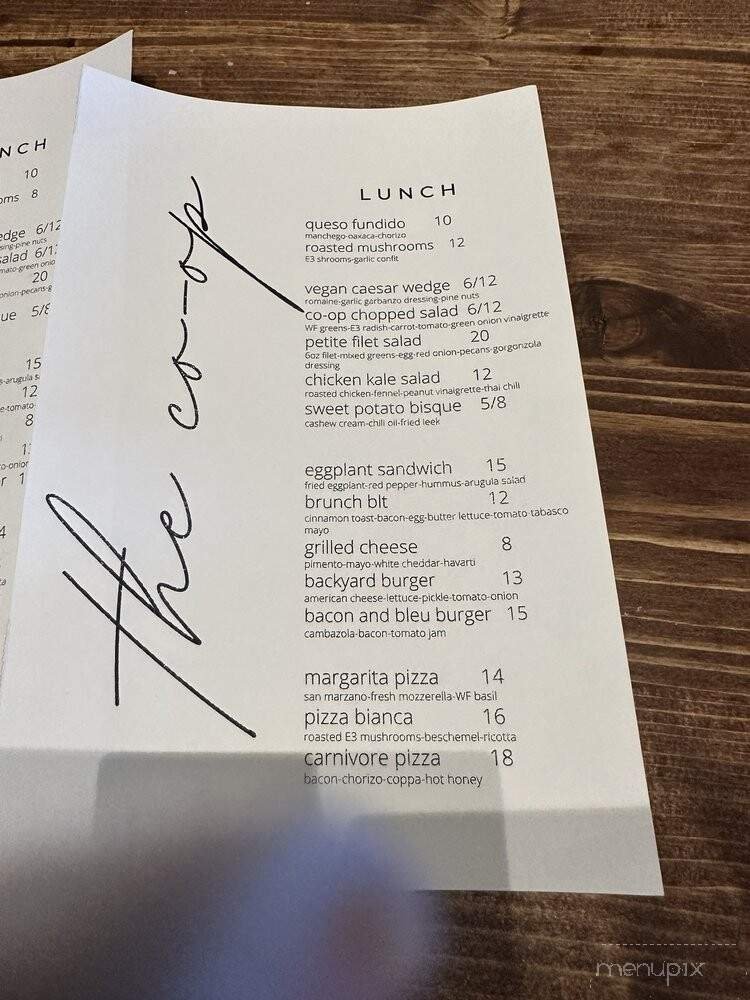 NCH
10
oms 8
edge 6/12
sing-pine nuts
salad 6/12
mato-green onio
20
onion-pecans-g
ue 5/8
15
s-arugula sa
12
e-tomato-
8
to-onion
the co-op
LUNCH
queso fundido 10
manchego-oaxaca-chorizo
roasted mushrooms 12
E3 shrooms-garlic confit
vegan caesar wedge 6/12
romaine-garlic garbanzo dressing-pine nuts
co-op chopped salad 6/12
WF greens-E3 radish-carrot-tomato-green onion vinaigrette
petite filet salad 20
6oz filet-mixed greens-egg-red onion-pecans-gorgonzola
dressing
chicken kale salad 12
roasted chicken-fennel-peanut vinaigrette-thai chili
sweet potato bisque 5/8
cashew cream-chili oil-fried leek
eggplant sandwich 15
fried eggplant-red pepper-hummus-arugula salad
brunch blt 12
cinnamon toast-bacon-egg-butter lettuce-tomato-tabasco
mayo
grilled cheese 8
pimento-mayo-white cheddar-havarti
backyard burger 13
american cheese-lettuce-pickle-tomato-onion
bacon and bleu burger 15
cambazola-bacon-tomato jam
margarita pizza 14
san marzano-fresh mozzerella-WF basil
pizza bianca 16
roasted E3 mushrooms-beschemel-ricotta
carnivore pizza 18
bacon-chorizo-coppa-hot honey
menupix